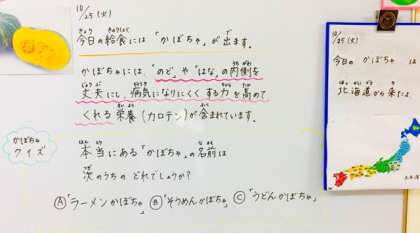 10/25(火)
今日の給食には「かぼちゃ」が出ます。
かぼちゃには、"のど"や"はな"の内側を
丈夫にし、病気になりにくくする力を高めて
くれる栄養(カロテン)が含まれています。
かぼちゃ
クイズ
本当にある「かぼちゃ」の名前は
次のうちの どれでしょうか？
Ⓐ「ラーメンかぼちゃ」 Ⓑ「そうめんかぼちゃ」 Ⓒ「うどんかぼちゃ」
10/25(火)
今日の かぼちゃ は
北海道から来たよ